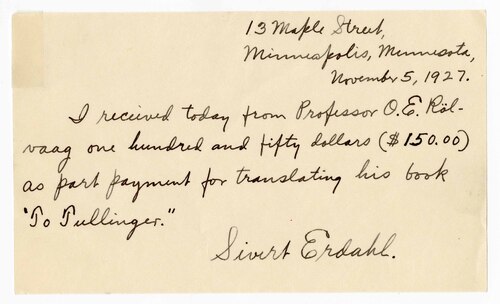 13 Maple Street,
Minneapolis, Minnesota,
November 5, 1927.
I received today from Professor O.E. Röl-
vaag one hundred and fifty dollars ($150.00)
as part payment for translating his book
"To Tullinger."
Sivert Erdahl.